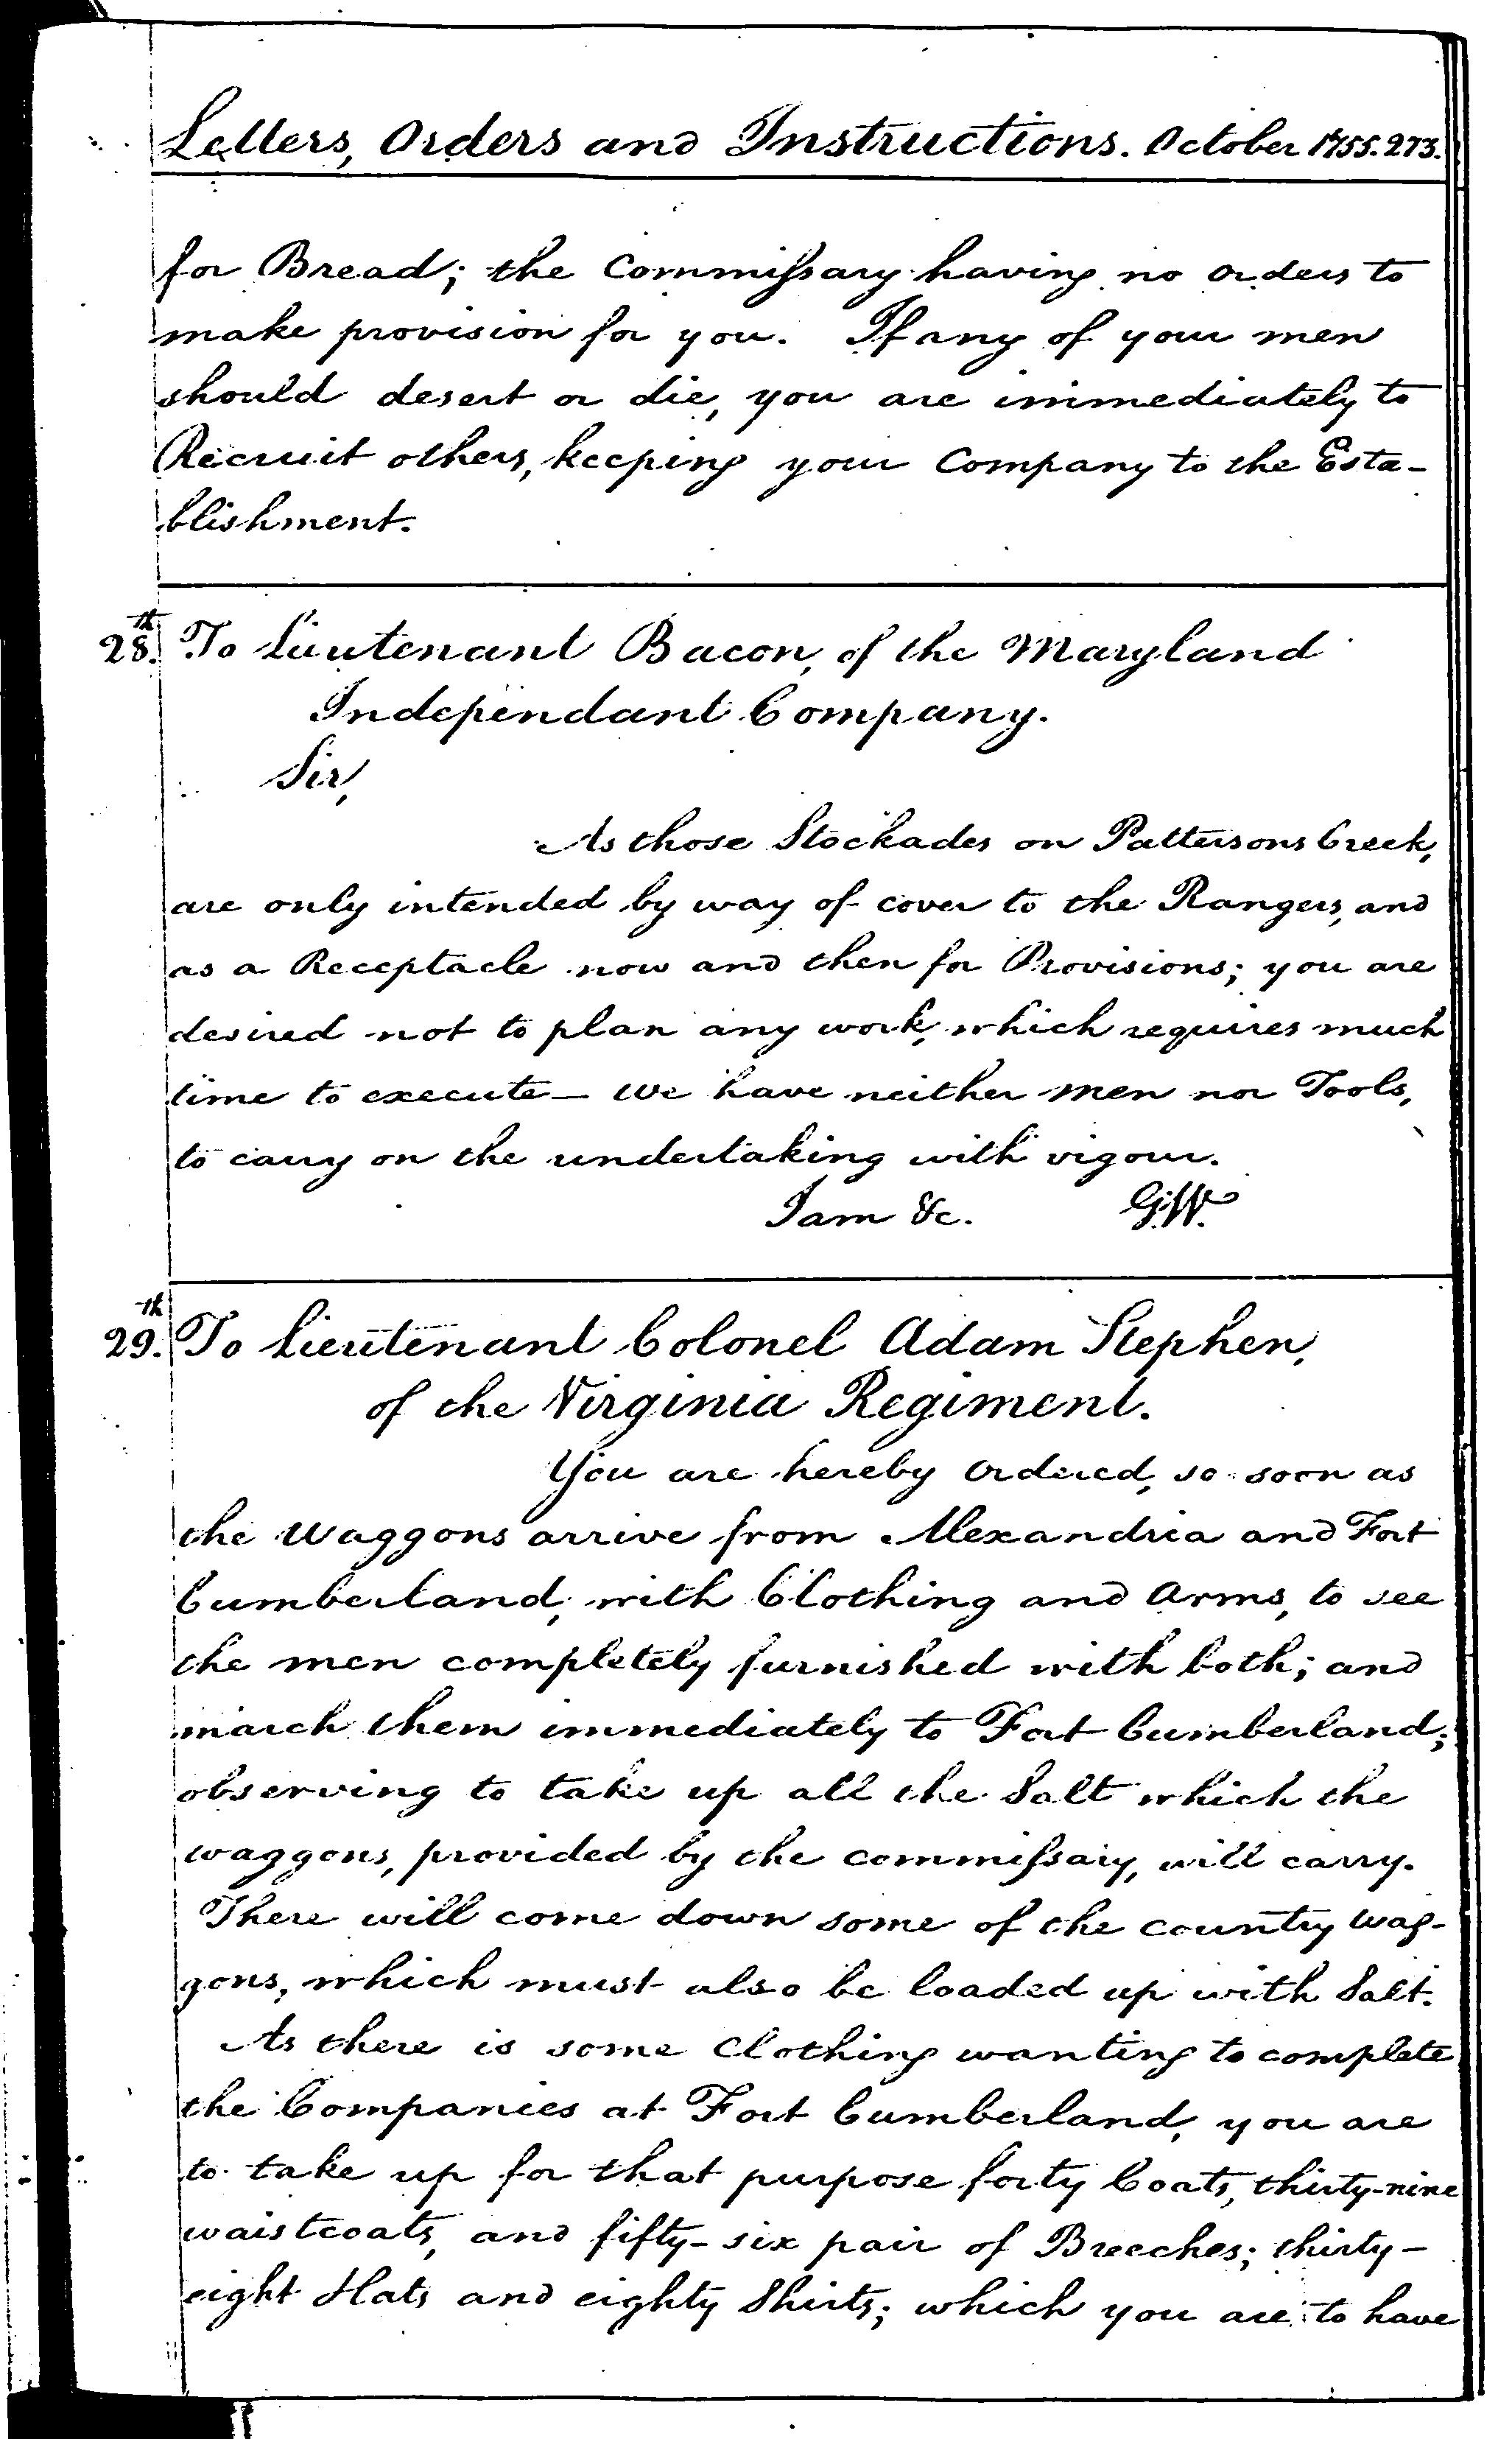 Letters, Orders and Instructions. October 1755. 273.
for Bread; the Commissary having no orders to
make provision for you. If any of your men
should desert or die, you are immediately to
Recruit others, keeping your Company to the Esta-
blishment.
28.th To Lieutenant Bacon, of the Maryland
Independant Company.
Sir,
As those Stockades on Pattersons Creek,
are only intended by way of cover to the Rangers, and
as a Receptacle now and then for Provisions; you are
desired not to plan any work, which requires much
time to execute— We have neither men nor Tools,
to carry on the undertaking with vigour.
I am &c. G:W.
29.th To Lieutenant Colonel Adam Stephen,
of the Virginia Regiment.
You are hereby Ordered, so soon as
the Waggons arrive from Alexandria and Fort
Cumberland, with Clothing and Arms, to see
the men completely furnished with both; and
march them immediately to Fort Cumberland;
observing to take up all the Salt which the
waggons, provided by the commissary, will carry.
There will come down some of the country Wag-
gons, which must also be loaded up with Salt.
As there is some Clothing wanting to complete
the Companies at Fort Cumberland, you are
to take up for that purpose forty Coats, thirty-nine
waistcoats, and fifty-six pair of Breeches; thirty-
eight Hats and eighty Shirts; which you are to have